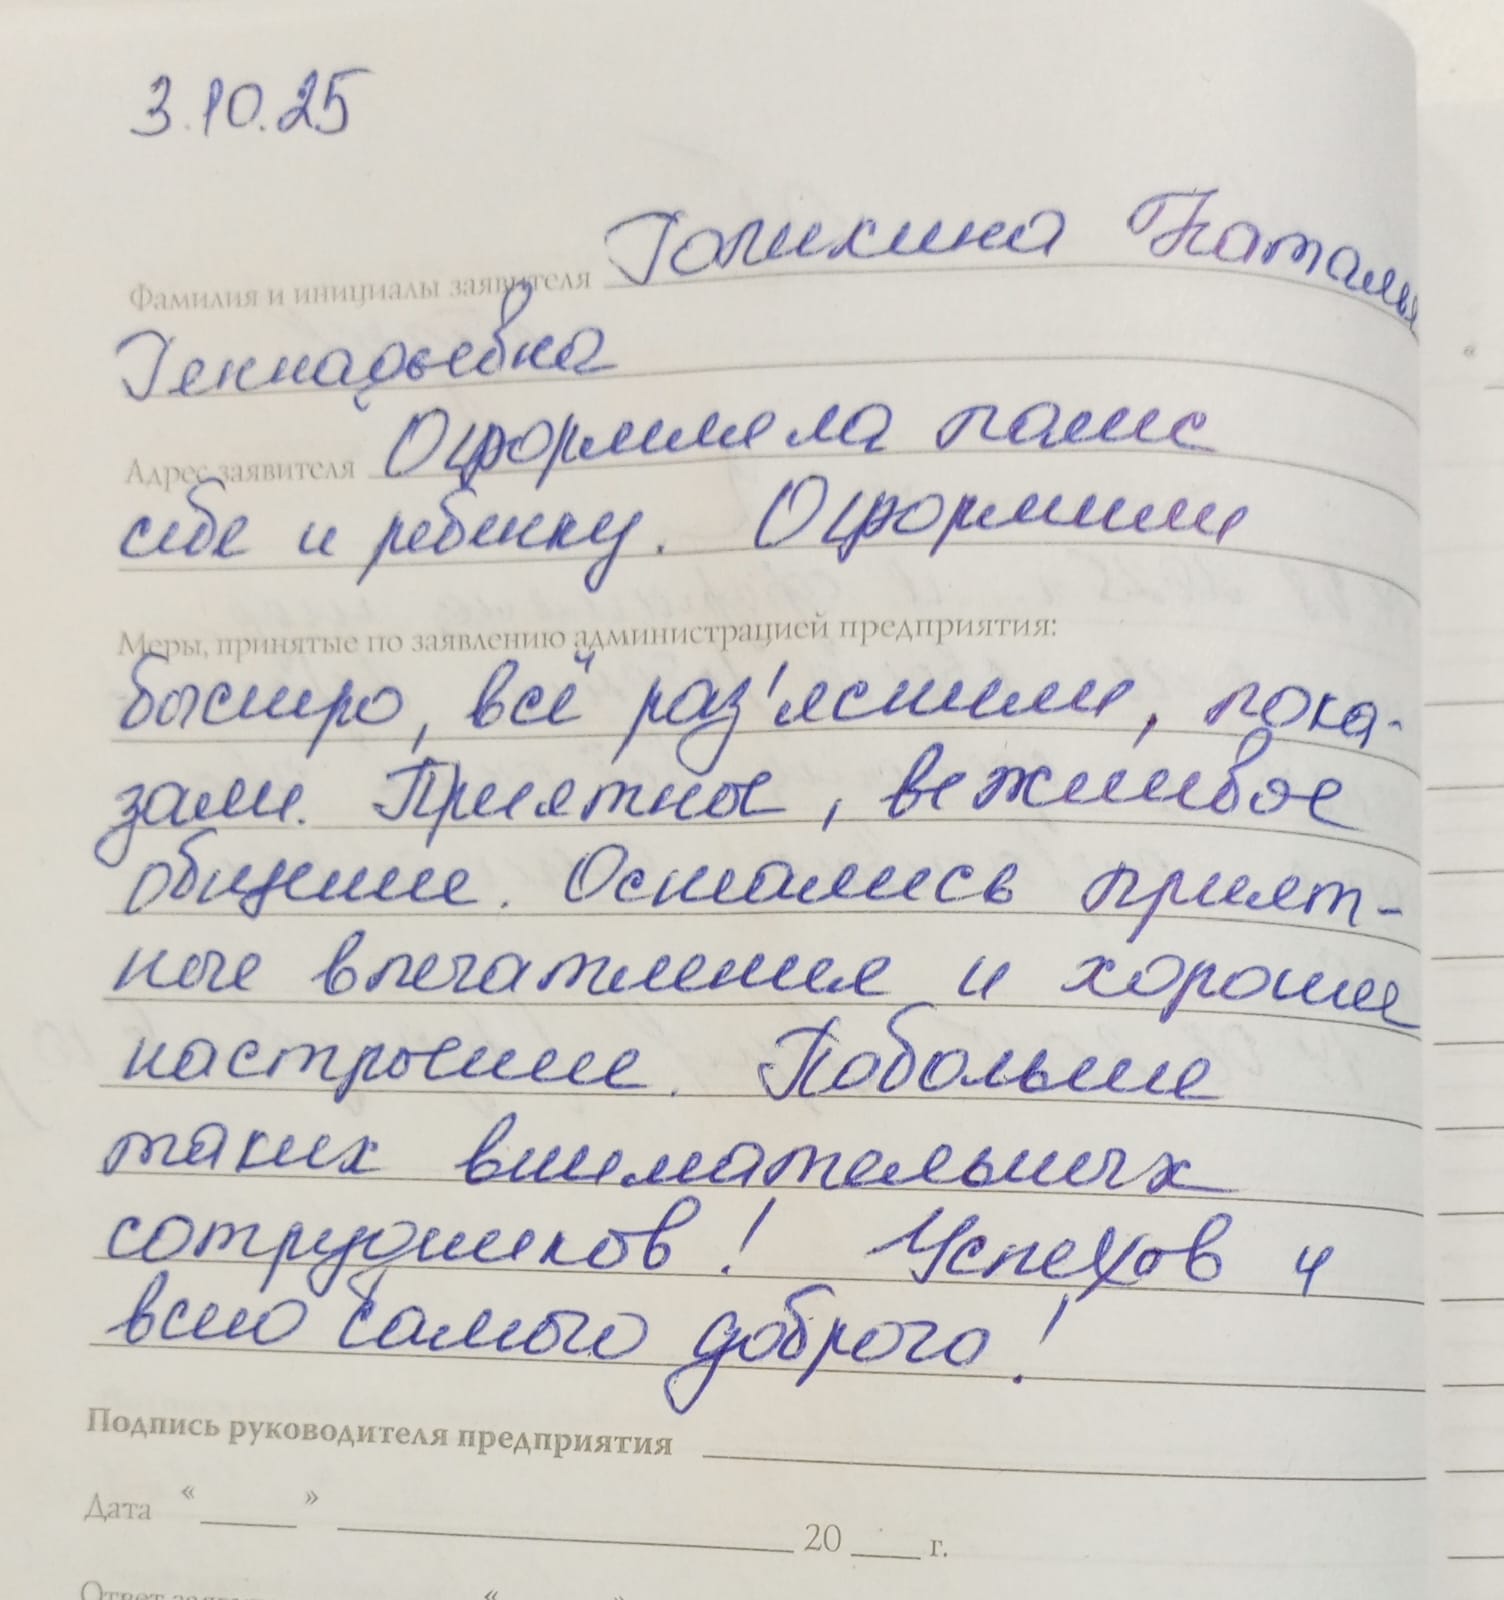 3.10.25
Фамилия и инициалы заявителя Голихина Наталья
Геннадьевна
Адрес заявителя Оформляла полис
себе и ребенку. Оформили
Меры, принятые по заявлению администрацией предприятия:
быстро, всё раз'яснили, пока-
зали. Приятное, вежливое
общение. Остались прият-
ные впечатления и хорошее
настроение. Побольше
таких внимательных
сотрудников! Успехов и
всего самого доброго!
Подпись руководителя предприятия
Дата « » 20 г.